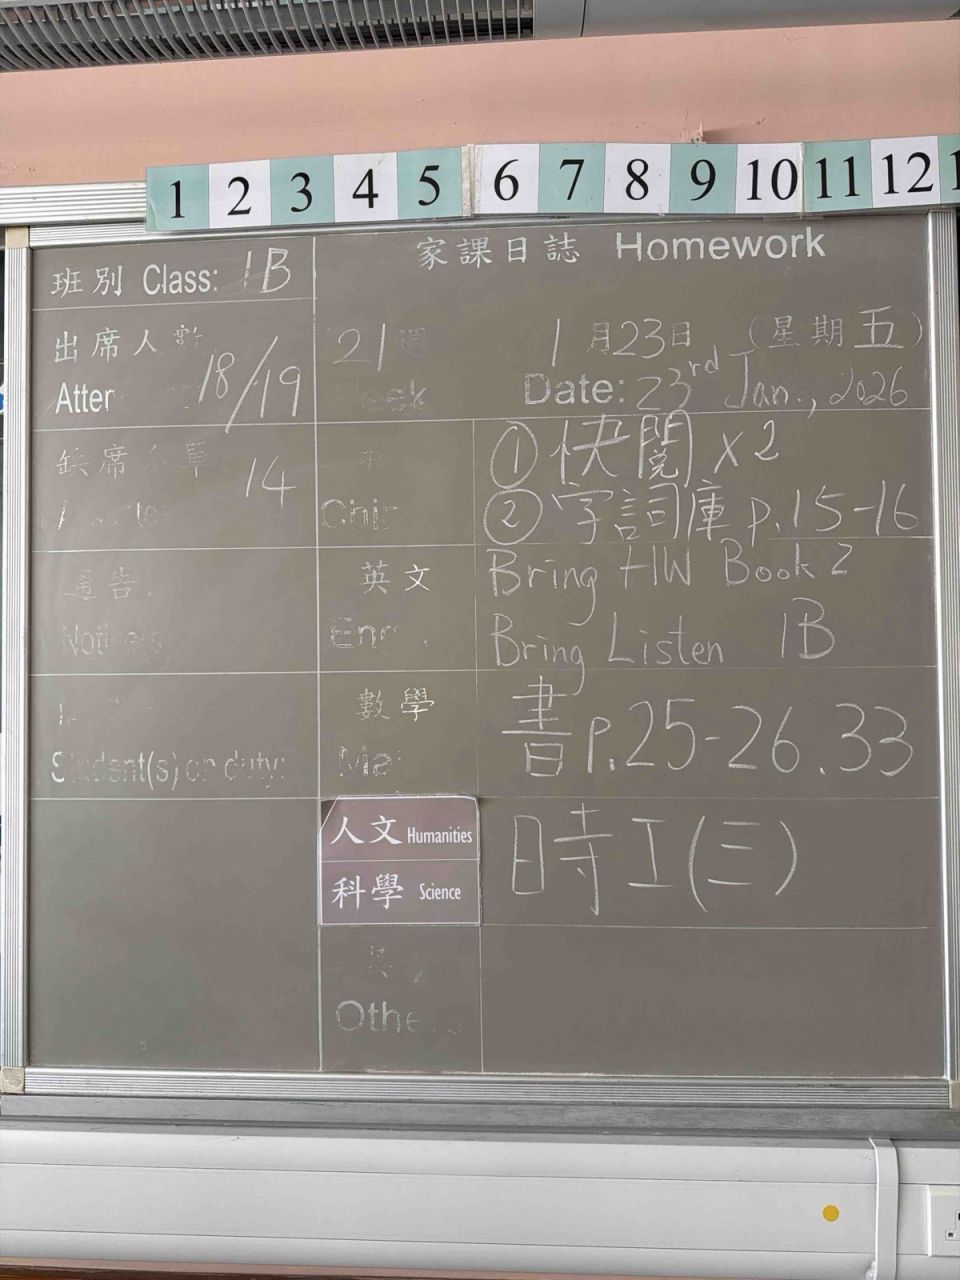 1 2 3 4 5 6 7 8 9 10 11 12
班別 Class: 1B
家課日誌 Homework
出席人數 18/19
Atter
21週
eek
1月23日 (星期五)
Date: 23rd Jan., 2026
缺席名單 14
Chin
①快閱 x2
②字詞庫 p.15-16
通告
英文
Eng
Bring HW Book 2
Bring Listen 1B
Student(s) on duty:
數學
Ma
書p.25-26.33
人文 Humanities
科學 Science
時工(三)
Othe